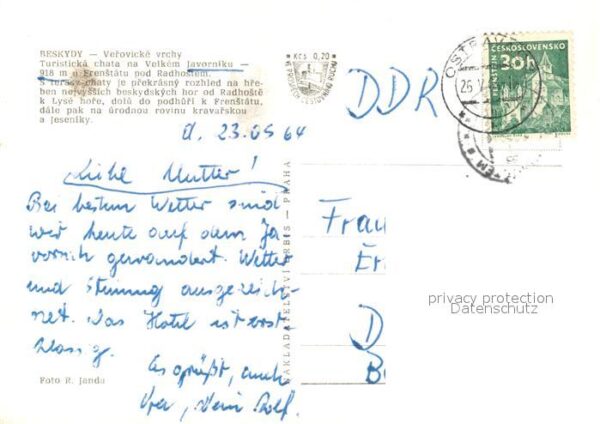 BESKYDY — Veřovické vrchy
Turistická chata na Velkém Javorníku —
918 m u Frenštátu pod Radhoštěm.
S terasy chaty je překrásný rozhled na hře-
ben nejvyšších beskydských hor od Radhoště
k Lysé hoře, dolů do podhůří k Frenštátu,
dále pak na úrodnou rovinu kravařskou
a Jeseníky.
Kčs 0,20
ČESKOSLOVENSKO
30h
DDR
d. 23.05 64
Liebe Mutter!
Bei bestem Wetter sind
wir heute auf dem Ja-
vornik gewandert. Wetter
und Stimmung ausgezeich-
net. Das Hotel ist erst
klassig.
Es grüßt, auch
Dein Rolf.
Foto R. Janda
NAKLADATELSTVÍ ORBIS — PRAHA
Frau
Er
D
B
privacy protection
Datenschutz